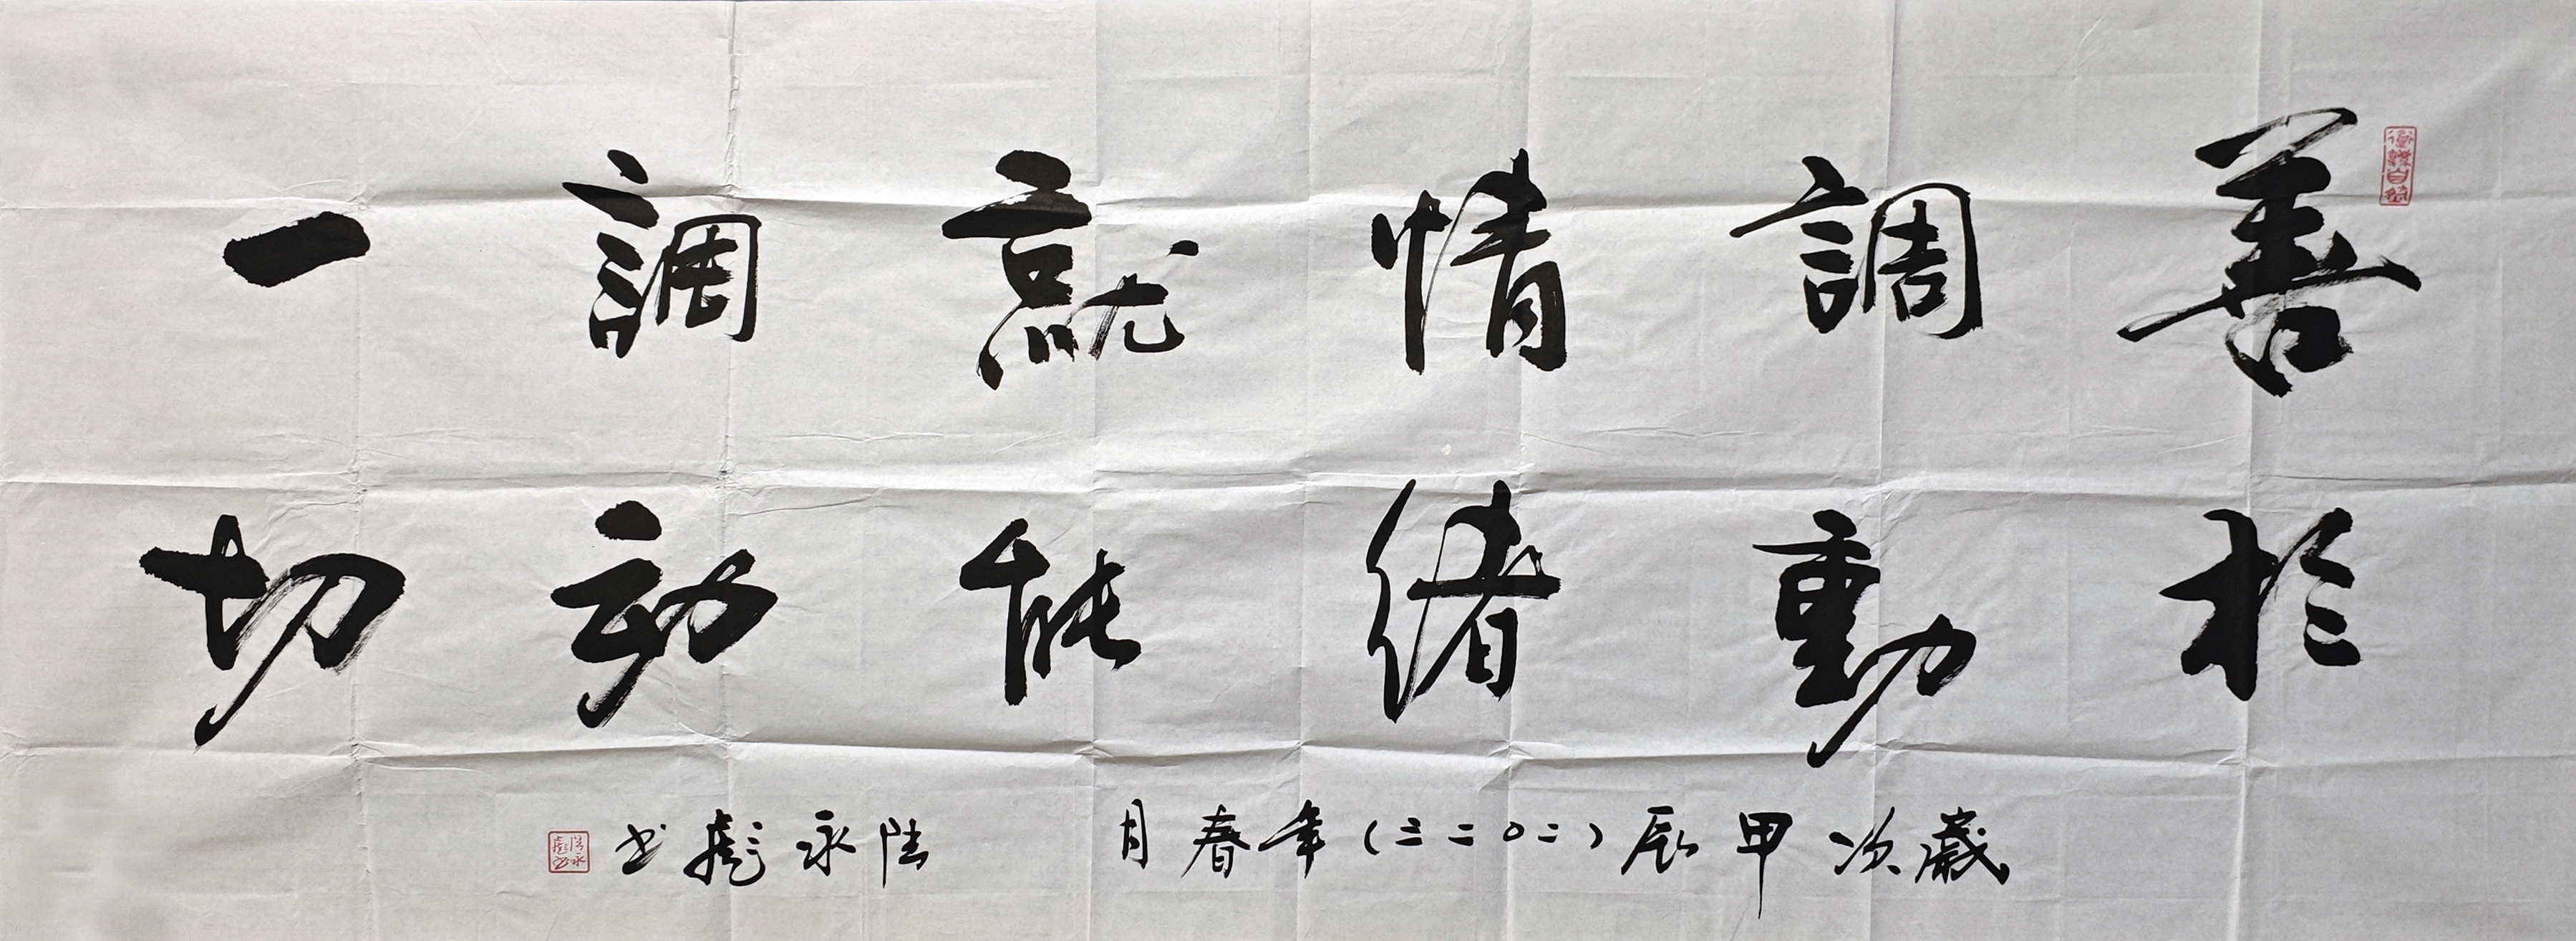 善於
調動
情緒
就能
調动
一切
歲次甲辰（二〇二三）年春月
陆永彪书